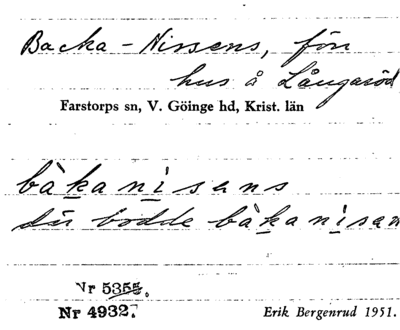 Backa-Nissens, förr
hus å Långaröd
Farstorps sn, V. Göinge hd, Krist. län
bàkanisans
där bodde bàkanisan
Nr 5355.
Nr 4932.
Erik Bergenrud 1951.